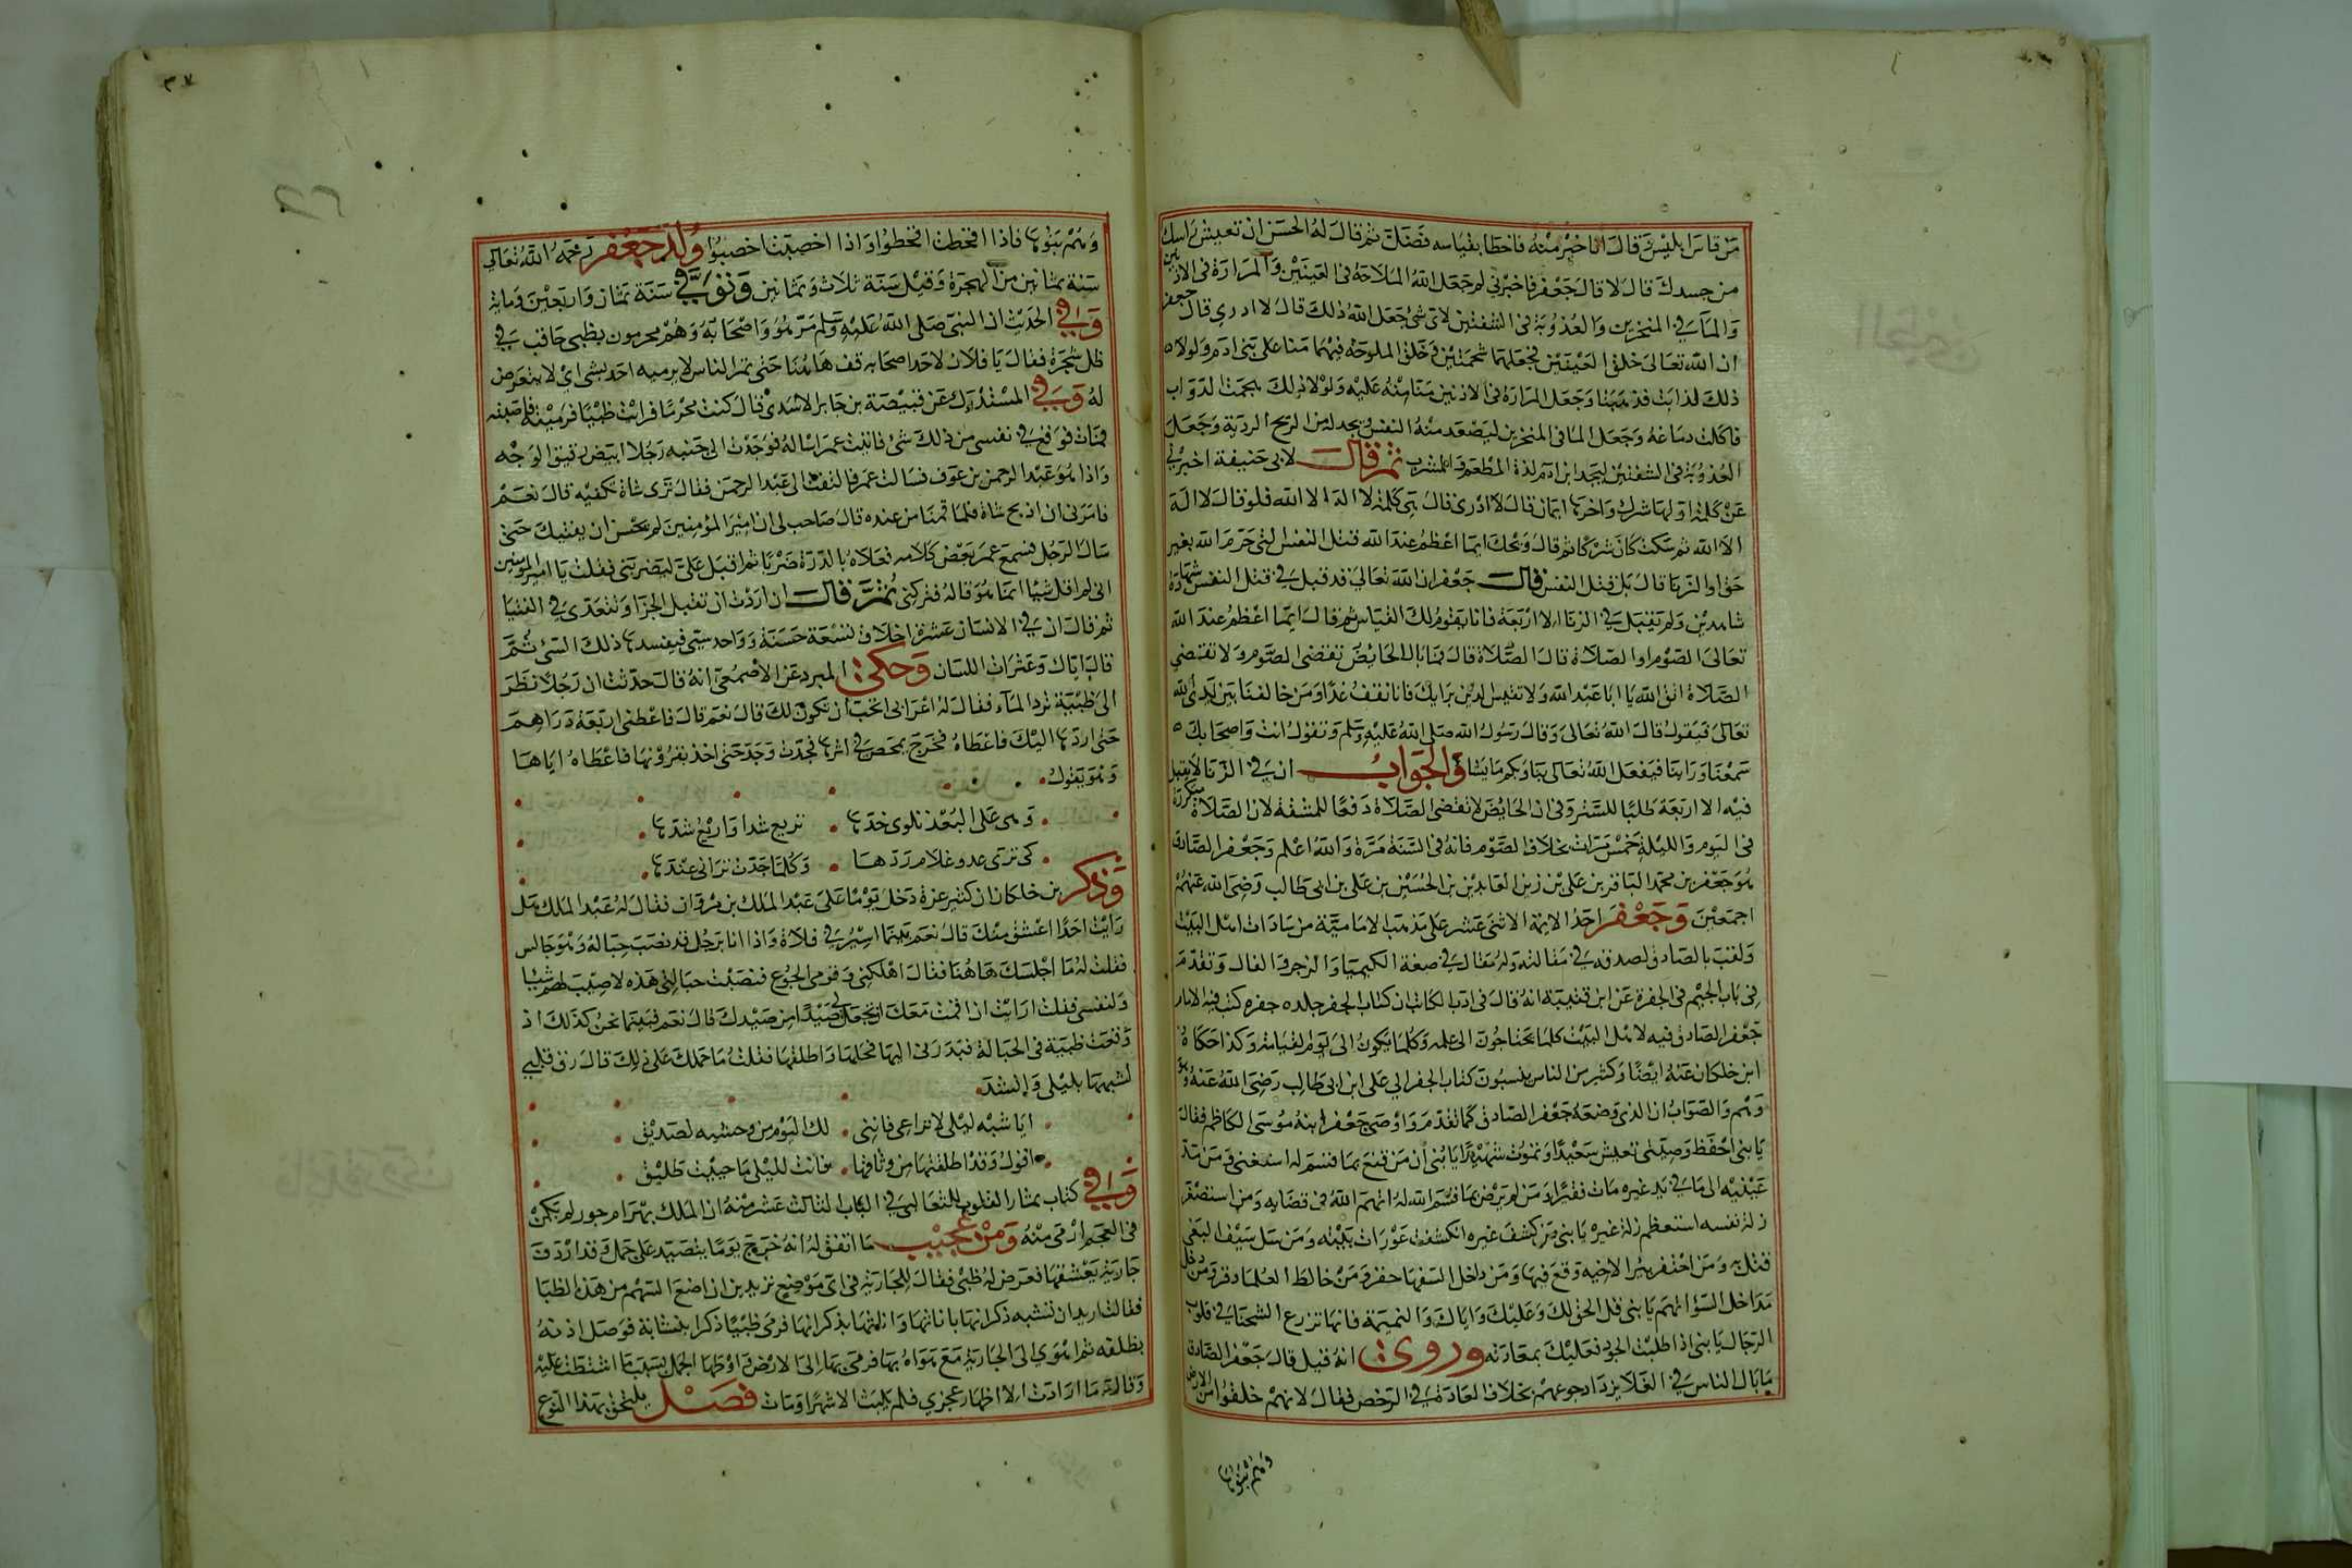 من قاس ابليس قال انا خير منه فاخطا بقياسه فضل ثم قال له الحسن ان تعيش راسك
من جسدك قال لا قال جعفر فاخبرني لم جعل الله الملاحة في العينين والمرارة في الاذنين
والمآ في المنخرين والعذوبة في الشفتين لاى شئ جعل الله ذلك قال لا ادري قال جعفر
ان الله تعالى خلق العينين فجعلهما شحمتين وخلق الملوحة فيهما منا على بنى ادم ولولا
ذلك لذابتا فذهبتا وجعل المرارة في الاذنين منا منه عليه ولولا ذلك هجمت الدواب
فاكلت دماغه وجعل الما فى المنخرين ليصعد منه النفس ويجد لذة الريح الردية وجعل
العذوبة في الشفتين ليجد ابن ادم لذة المطعم والمشرب ثم قال لابى حنيفة اخبرني
عن كلمة اولها شرك واخرها ايمان قال لا ادرى قال هى كلمة لا اله الا الله فلو قال لا اله
الا الله ثم سكت كان شركا ثم قال ويحك ايما اعظم عند الله قتل النفس التى حرم الله بغير
حق او الزنا قال بل قتل النفس قال جعفر ان الله تعالى قد قبل في قتل النفس شهادة
شاهدين ولم يقبل في الزنا الا اربعة فانا يقوم لك القياس ثم قال ايما اعظم عند الله
تعالى الصوم او الصلاة قال الصلاة قال فما بال الحايض تقضى الصوم ولا تقضى
الصلاة اتق الله يا ابا عبد الله ولا تقيس الدين برايك فانا نقف غدا ومن خالفنا بين يدى الله
تعالى فيقول قال الله تعالى وقال رسول الله صلى الله عليه وسلم وتقول انت واصحابك
سمعنا وراينا فيفعل الله تعالى بنا وبكم ما يشا والجواب ان في الزنا لا يقبل
فيه الا اربعة طلبا للستر وفى ان الحايض لا تقضى الصلاة دفعا للمشقة لان الصلاة متكررة
فى اليوم والليلة خمس مرات بخلاف الصوم فانه فى السنة مرة والله اعلم وجعفر الصادق
هو جعفر بن محمد الباقر بن على بن زين العابدين بن الحسين بن على بن ابى طالب رضى الله عنهم
اجمعين وجعفر احد الايمة الاثنى عشر على مذهب الامامية من سادات اهل البيت
ولقب بالصادق لصدقه في مقالته وله مقال في صنعة الكيميا والزجر والفال وتقدم
فى باب الجيم فى الجفرة عن ابن قتيبة انه قال فى ادب الكاتب ان كتاب الجفر جلده جفره كتب فيه الامام
جعفر الصادق فيه لاهل البيت كلما يحتاجون الى علمه وكلما يكون الى يوم القيامة وكذا حكاه
ابن خلكان عنه ايضا وكثير من الناس ينسبون كتاب الجفر الى على ابن ابى طالب رضى الله عنه وهو
وهم والصواب ان الذى وضعه جعفر الصادق كما تقدم واوصى جعفر ابنه موسى الكاظم فقال
يا بنى احفظ وصيتى تعيش سعيدا وتموت شهيدا يا بنى ان من قنع بما قسم له استغنى ومن مد
عينيه الى ما في يد غيره مات فقيرا ومن لم يرض بما قسم الله له اتهم الله فى قضايه ومن استصغر
زلة نفسه استعظم زلة غيره يا بنى من كشف غيره انكشفت عورات بيته ومن سل سيف البغى
قتل به ومن احتفر بئرا لاخيه وقع فيها ومن داخل السفها حقر ومن خالط العلما وقر ومن دخل
مداخل السؤ اتهم يا بنى قل الحق لك وعليك واياك والنميمة فانها تزرع الشحنا في قلوب
الرجال يا بنى اذا طلبت الجود فعليك بمعادنه وروى انه قيل قال جعفر الصادق
ما بال الناس في الغلا يزداد جوعهم بخلاف العادة في الرخص فقال لانهم خلقوا من الارض
وهم بنوها
٣٧
وهم بنوها فاذا اقحطت اقحطوا واذا اخصبت اخصبوا ولد جعفر رحمه الله تعالى
سنة ثمانين من الهجرة وقيل سنة ثلاث وثمانين وتوفي سنة ثمان واربعين وماية
وفي الحديث ان النبي صلى الله عليه وسلم مر هو واصحابه وهم محرمون بظبى حاقب في
ظل شجرة فقال يا فلان لاحد اصحابه قف هاهنا حتى تمر الناس لا يرميه احد بشى اى لا يتعرض
له وفي المستدرك عن قبيصة بن جابر الاسدي قال كنت محرما فرايت ظبيا فرميته فاصبته
فمات فوقع في نفسى من ذلك شئ فاتيت عمر اساله فوجدت الى جنبه رجلا ابيض رقيق الوجه
واذا هو عبد الرحمن بن عوف فسالت عمر فالتفت الى عبد الرحمن فقال ترى شاة تكفيه قال نعم
فامرنى ان اذبح شاة فلما قمنا من عنده قال صاحب لى ان امير المؤمنين لم يحسن ان يفتيك حتى
سال الرجل فسمع عمر بعض كلامه فعلاه بالدرة ضربا ثم اقبل على ليضربنى فقلت يا امير المؤمنين
انى لم اقل شيا انما هو قاله فتركنى ثم قال ان اردت ان تقبل الجزا وتتعدى في الفتيا
ثم قال ان في الانسان عشرة اخلاق تسعة حسنة وواحد سيى فيفسدها ذلك السئ ثم
قال اياك وعثرات اللسان وحكى المبرد عن الاصمعى انه قال حدثت ان رجلا نظر
الى ظبية ترد المآء فقال له اعرابى اتحب ان تكون لك قال نعم قال فاعطنى اربعة دراهم
حتى اردها اليك فاعطاه فخرج يمحص في اثرها فجدت وجد حتى اخذ بقرونها فاعطاه اياها
وهو يقول
وهى على البعد تلوى خدها تريع شدا واريع شدها
كى ترى عدو غلام ردها وكلما جدت ترانى عندها
وذكر بن خلكان ان كثير عزة دخل يوما على عبد الملك بن مروان فقال له عبد الملك هل
رايت احدا اعشق منك قال نعم بينما اسير في فلاة واذا انا برجل قد نصب حباله وهو جالس
فقلت له ما اجلسك هاهنا فقال اهلكنى وقومى الجوع فنصبت حبالتى هذه لاصيب لهم شيا
ولنفسى فقلت ارايت ان اقمت معك اتجعل لى صيدا من صيدك قال نعم فبينما نحن كذلك اذ
وقعت ظبية فى الحبالة فبدرنى اليها فحلها واطلقها فقلت ما حملك على ذلك قال رق قلبى
لشبهها بليلى وانشد
ايا شبه ليلى لا تراعى فاننى لك اليوم من وحشيه لصديق
اقول وقد اطلقتها من وثاقها فانت لليلى ما حييت طليق
وفي كتاب ثمار القلوب للثعالبي في الباب الثالث عشر منه ان الملك بهرام جور لم يكن
فى العجم ارمى منه ومن عجيب ما اتفق له انه خرج يوما يتصيد على جمل وقد اردف
جارية يعشقها فعرض له ظبى فقال للجارية فى اى موضع تريدين ان اضع السهم من هذه الظبا
فقالت اريد ان تشبه ذكرانها باناثها واناثها بذكرانها فرمى ظبيا ذكرا بنشابة فوصل اذنه
بظلفه ثم اهوى الى الجارية مع هواه بها فرمى بها الى الارض واوطاها الجمل بسبب ما اشتطت عليه
وقال ما ارادت الا اظهار عجزي فلم يلبث الا شهرا ومات فصل يلتحق بهذا النوع